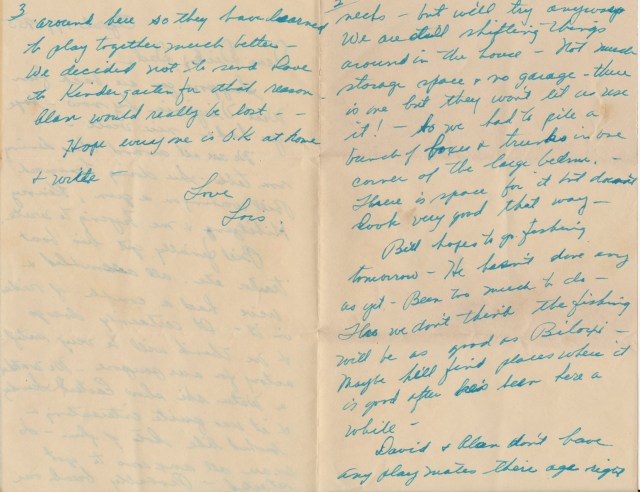 necks - but will try anyway
We are still shifting things
around in the house - Not much
storage space & no garage - there
is one but they won't let us use
it! - So we had to pile a
bunch of boxes & trunks in one
corner of the large bedrm. -
There is space for it but doesn't
look very good that way -
Bill hopes to go fishing
tomorrow - He hasn't done any
as yet - Been too much to do -
Tho we don't think the fishing
will be as good as Biloxi -
Maybe he'll find places where it
is good after he's been here a
while -
David & Alan don't have
any playmates there age right
3
around here so they have learned
to play together much better -
We decided not to send Dave
to Kindergarten for that reason -
Alan would really be lost - -
Hope everyone is O.K at home
& write -
Love
Lois.